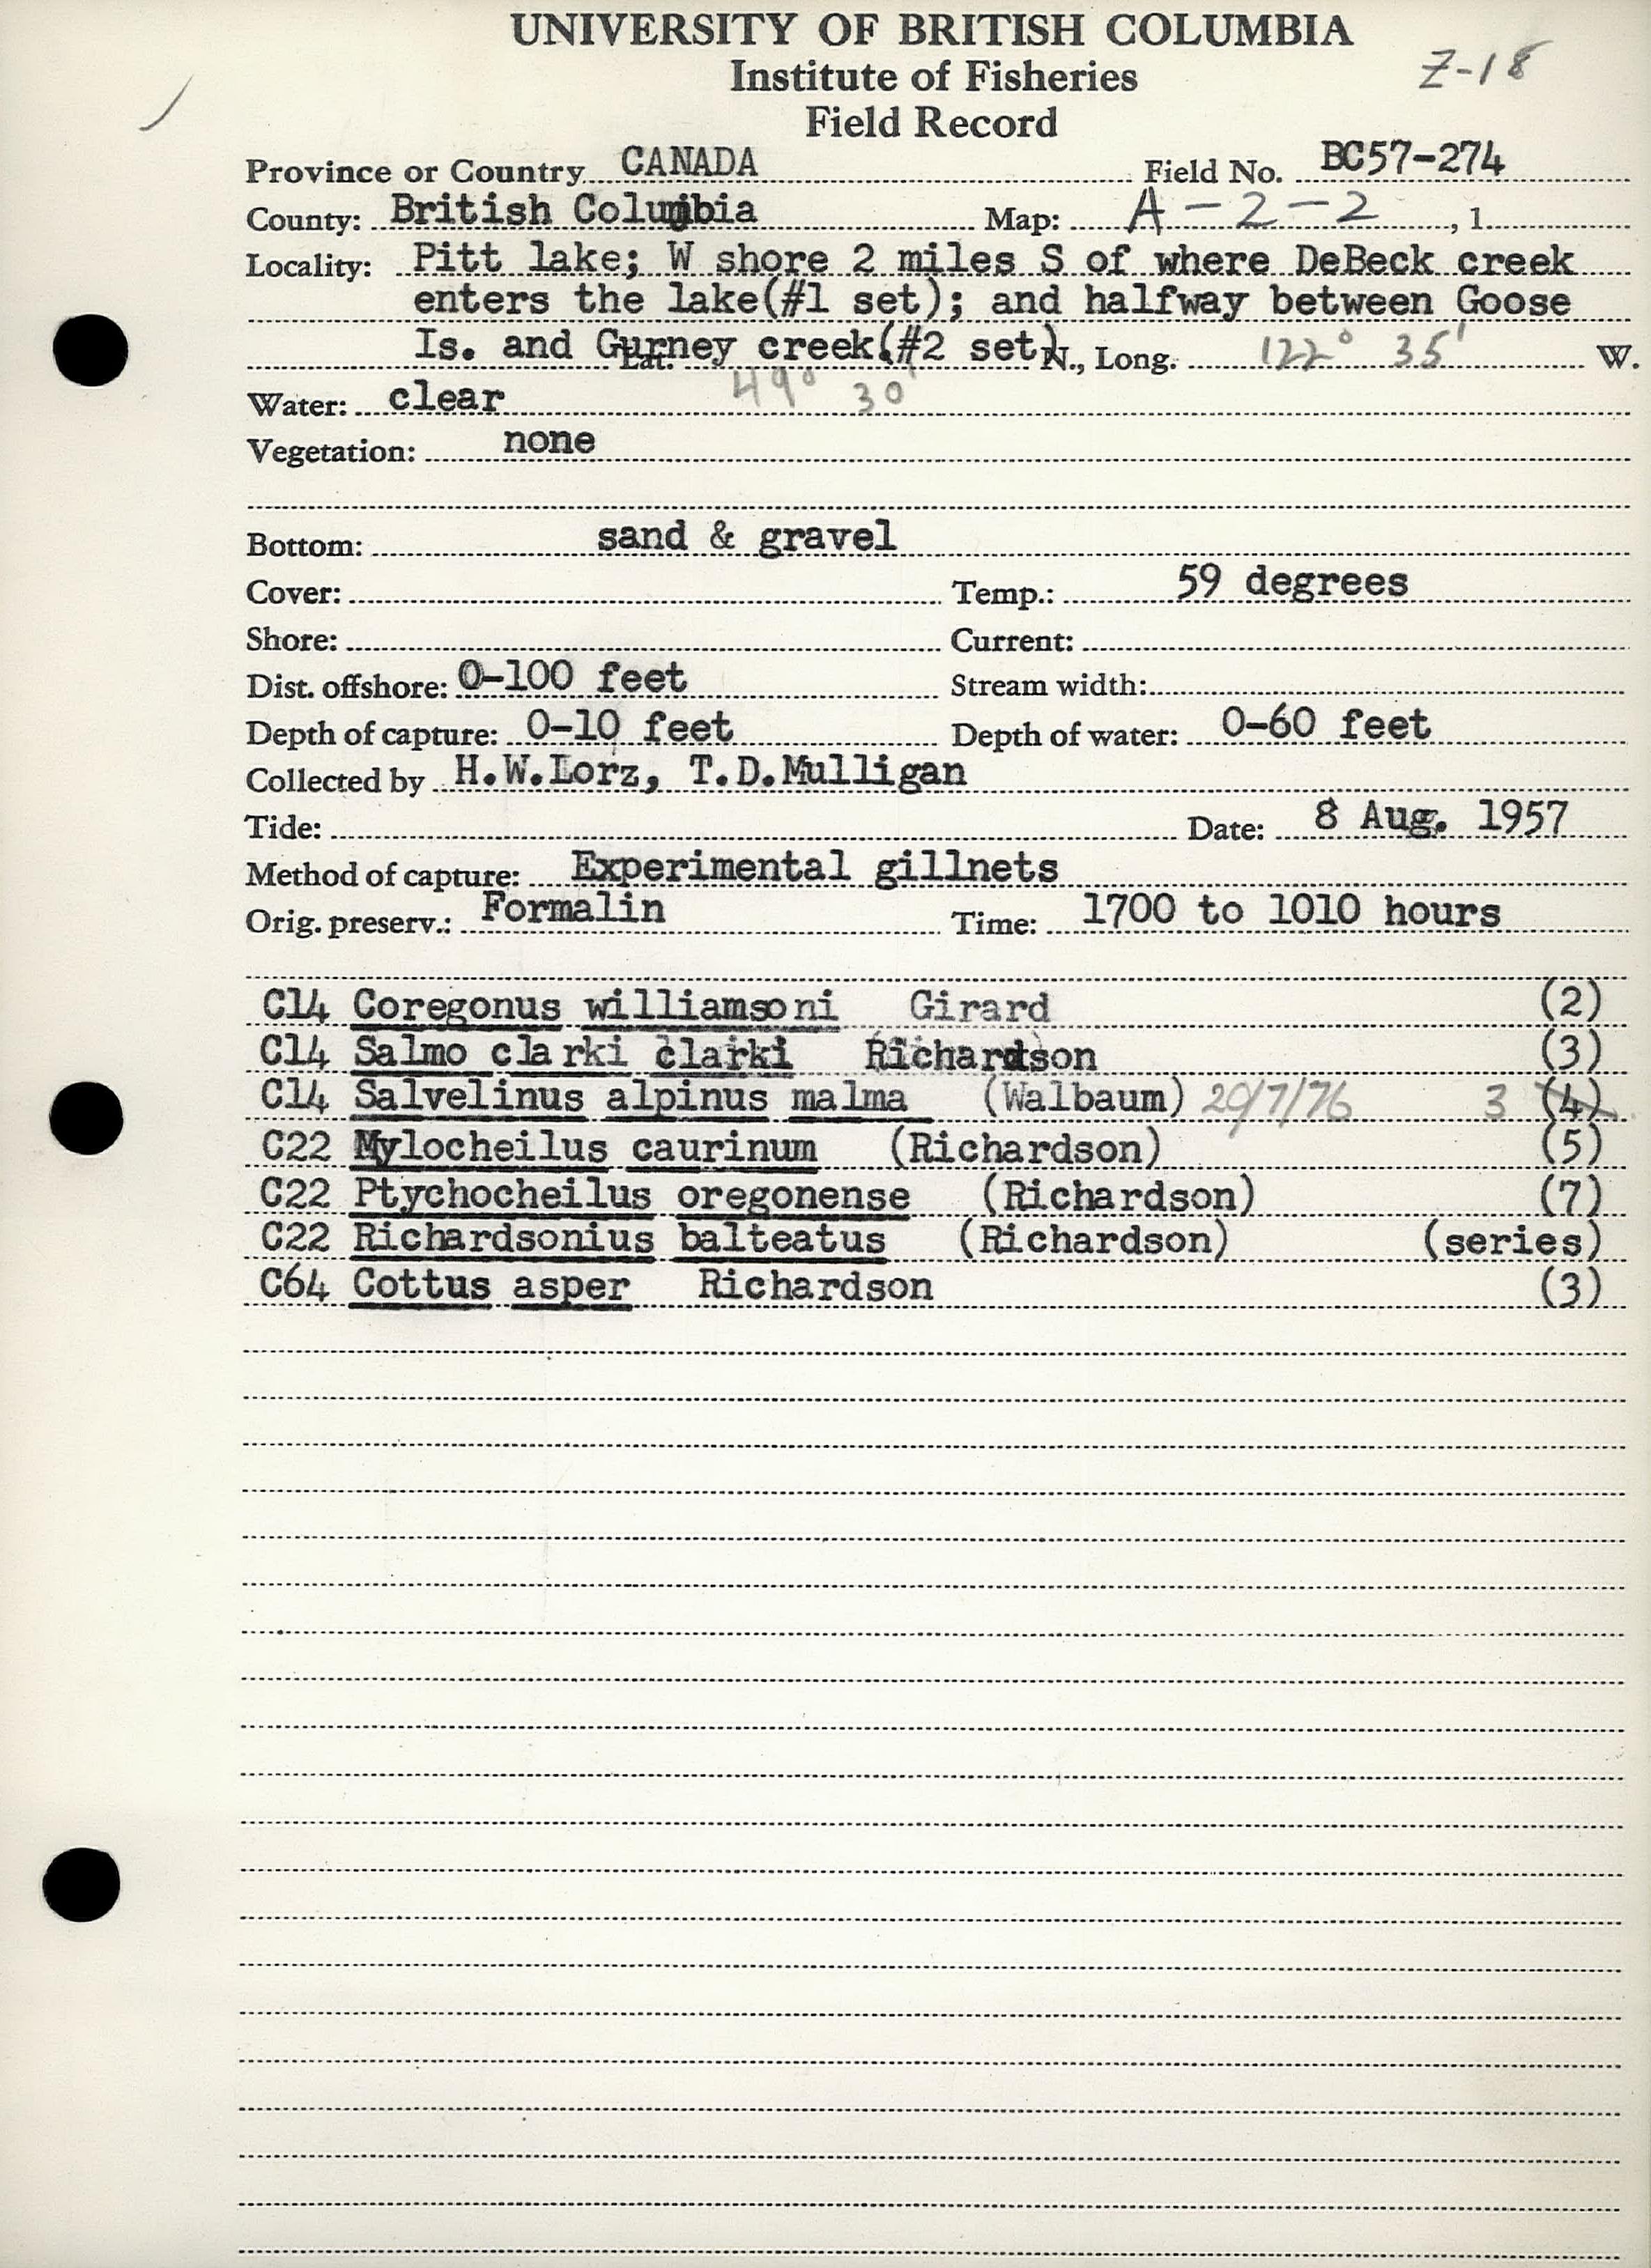 UNIVERSITY OF BRITISH COLUMBIA
Z-18
Institute of Fisheries
Field Record
Province or Country CANADA Field No. BC57-274
County: British Columbia Map: A-2-2, 1
Locality: Pitt lake; W shore 2 miles S of where DeBeck creek
enters the lake(#1 set); and halfway between Goose
Is. and Gurney creek(#2 set) Lat. N., Long. 122° 35' W.
49° 30'
Water: clear
Vegetation: none
Bottom: sand & gravel
Cover: Temp.: 59 degrees
Shore: Current:
Dist. offshore: 0-100 feet Stream width:
Depth of capture: 0-10 feet Depth of water: 0-60 feet
Collected by H.W.Lorz, T.D.Mulligan
Tide: Date: 8 Aug. 1957
Method of capture: Experimental gillnets
Orig. preserv.: Formalin Time: 1700 to 1010 hours
C14 Coregonus williamsoni Girard (2)
C14 Salmo clarki clarki Richardson (3)
C14 Salvelinus alpinus malma (Walbaum) 20/7/76 3 (4)
C22 Mylocheilus caurinum (Richardson) (5)
C22 Ptychocheilus oregonense (Richardson) (7)
C22 Richardsonius balteatus (Richardson) (series)
C64 Cottus asper Richardson (3)